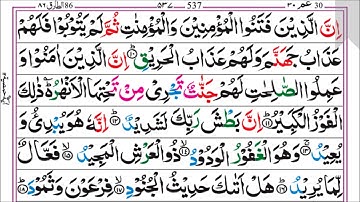 عمّ ٣٠ ٥٣٧ 537 الطارق ٨٦ 86 30
اِنَّ الَّذِيْنَ فَتَنُوا الْمُؤْمِنِيْنَ وَالْمُؤْمِنٰتِ ثُمَّ لَمْ يَتُوْبُوْا فَلَهُمْ
عَذَابُ جَهَنَّمَ وَلَهُمْ عَذَابُ الْحَرِيْقِ ۝١٠ اِنَّ الَّذِيْنَ اٰمَنُوْا وَ
عَمِلُوا الصّٰلِحٰتِ لَهُمْ جَنّٰتٌ تَجْرِيْ مِنْ تَحْتِهَا الْاَنْهٰرُ ذٰلِكَ
الْفَوْزُ الْكَبِيْرُ ۝١١ اِنَّ بَطْشَ رَبِّكَ لَشَدِيْدٌ ۝١٢ اِنَّهٗ هُوَ يُبْدِئُ وَ
يُعِيْدُ ۝١٣ وَهُوَ الْغَفُوْرُ الْوَدُوْدُ ۝١٤ ذُو الْعَرْشِ الْمَجِيْدُ ۝١٥ فَعَّالٌ
لِّمَا يُرِيْدُ ۝١٦ هَلْ اَتٰىكَ حَدِيْثُ الْجُنُوْدِ ۝١٧ فِرْعَوْنَ وَثَمُوْدَ ۝١٨